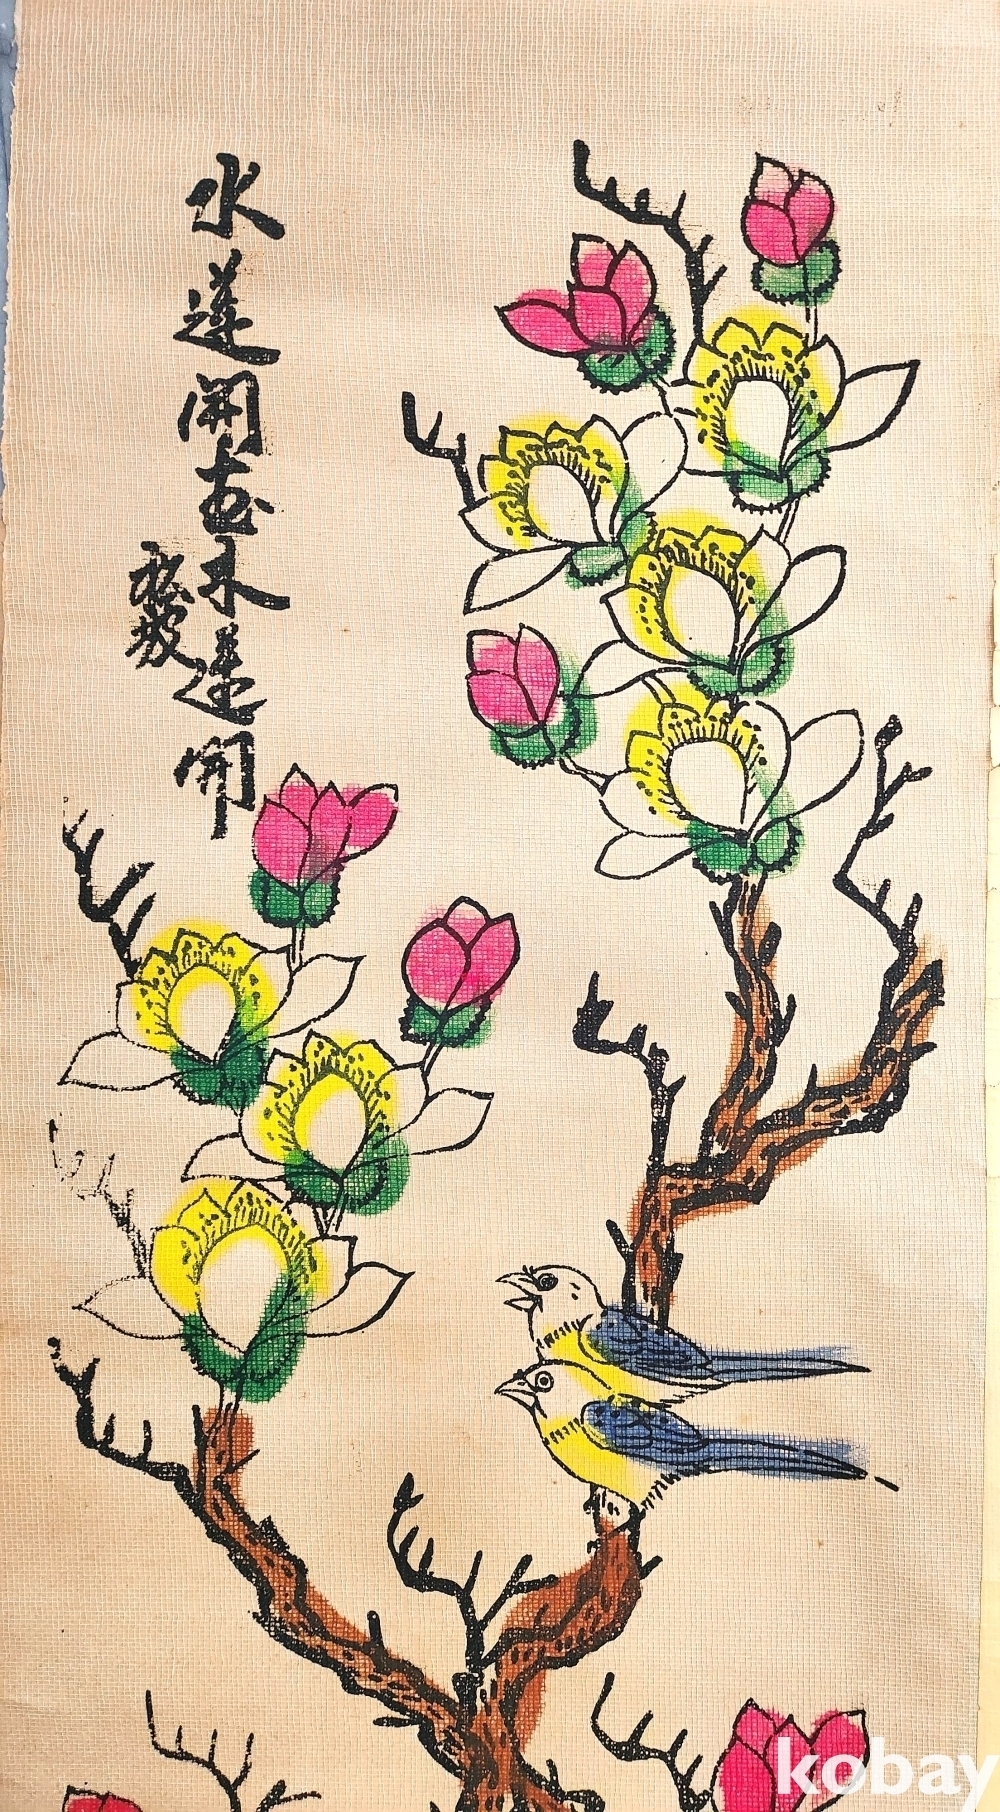 水蓮開盡木蓮開
kobay